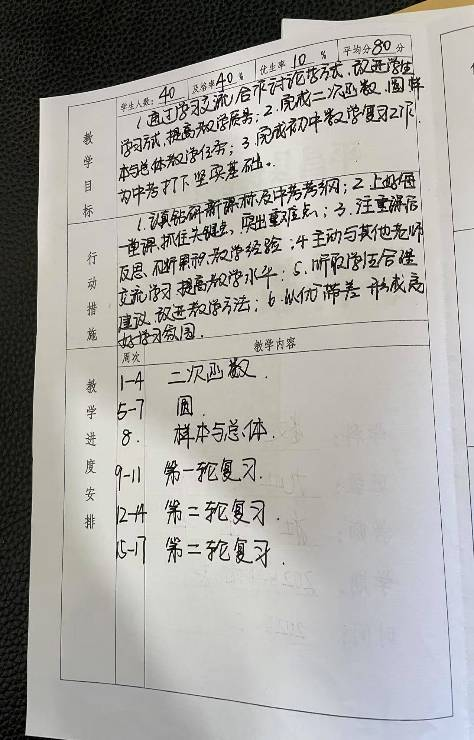 学生人数：40 及格率40% 优生率10% 平均分80分
教学目标
1.通过学习交流,合作讨论学方式,改进学生
学习方式,提高教学质量；2.完成二次函数、圆、样
本与总体教学任务；3.完成初中数学复习工作,
为中考打下坚实基础。
行动措施
1.认真钻研新课标及中考考纲；2.上好每
一堂课,抓住关键点,突出重难点；3.注重课后
反思,不断累积教学经验；4.主动与其他老师
交流学习,提高教学水平；5.听取学生合理
建议,改进教学方法；6.以优带差,形成良
好学习氛围.
教学进度安排
周次 教学内容
1-4 二次函数.
5-7 圆.
8. 样本与总体.
9-11 第一轮复习.
12-14 第二轮复习.
15-17 第二轮复习.